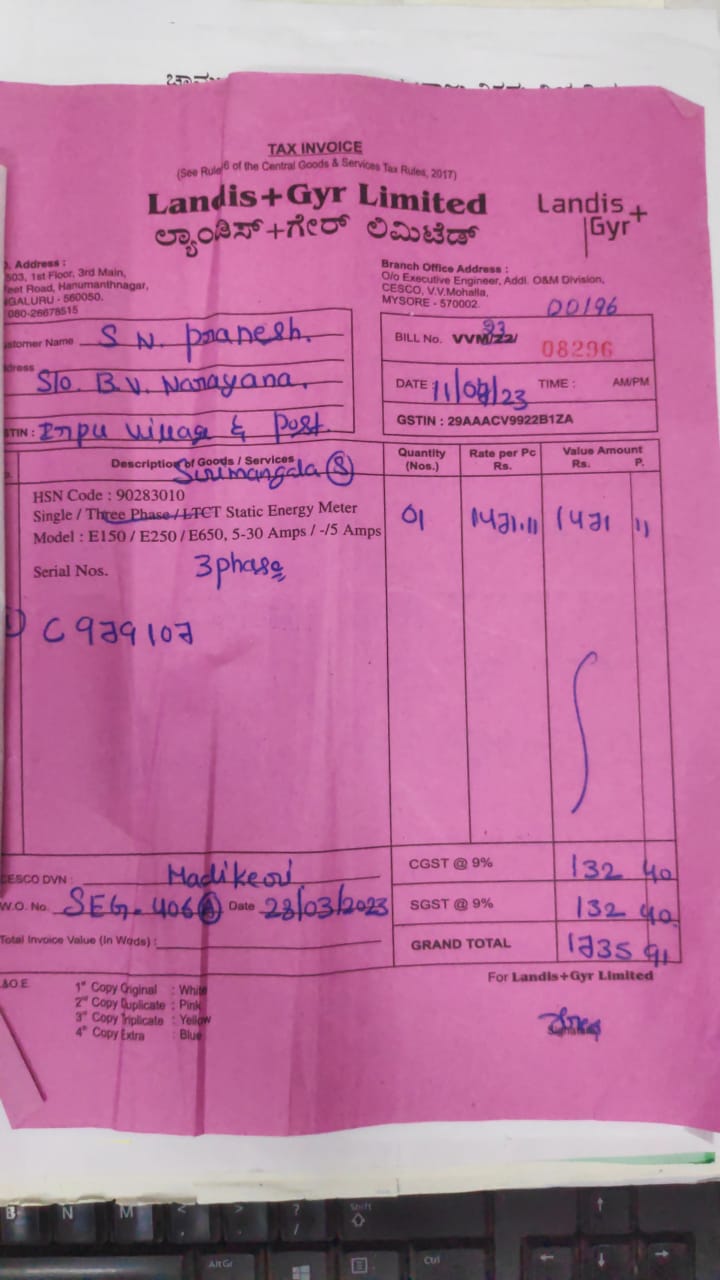 TAX INVOICE
(See Rule 6 of the Central Goods & Services Tax Rules, 2017)
Landis+Gyr Limited
Landis+
Gyr
ಲ್ಯಾಂಡಿಸ್+ಗೇರ್ ಲಿಮಿಟೆಡ್
Address :
503, 1st Floor, 3rd Main,
eet Road, Hanumanthnagar,
GALURU - 560050.
080-26678515
Branch Office Address :
O/o Executive Engineer, Addl. O&M Division,
CESCO, V.V.Mohalla,
MYSORE - 570002.
00196
stomer Name S N. Pranesh.
BILL No. VVM/22/ 23 08296
dress S/o. B.V. Narayana,
DATE : 11/ /23 TIME : AM/PM
TIN : Inpu village & post.
GSTIN : 29AAACV9922B1ZA
Description of Goods / Services Quantity (Nos.) Rate per Pc Rs. Value Amount Rs. P.
Sirimangala (S)
HSN Code : 90283010
Single / Three Phase / LTCT Static Energy Meter 01 1471.11 1471 11
Model : E150 / E250 / E650, 5-30 Amps / -/5 Amps
Serial Nos. 3 phase
1) C 979107
CESCO DVN : Madikeri
CGST @ 9% 132 40
W.O. No. SEG-406 (A) Date 28/03/2023
SGST @ 9% 132 40
Total Invoice Value (In Wods) :
GRAND TOTAL 1735 91
&O.E.
For Landis+Gyr Limited
1st Copy Original : White
2nd Copy Duplicate : Pink
3rd Copy Triplicate : Yellow
4th Copy Extra : Blue
B N M < > ? / Shift
Alt Gr Ctrl